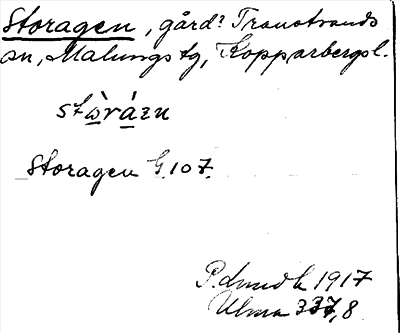 Storagen, gård? Transtrands
sn, Malungs tg, Kopparbergs l.
stὼrázn
Storagen G.107.
P. Lindh 1917
Ulma 337, 8